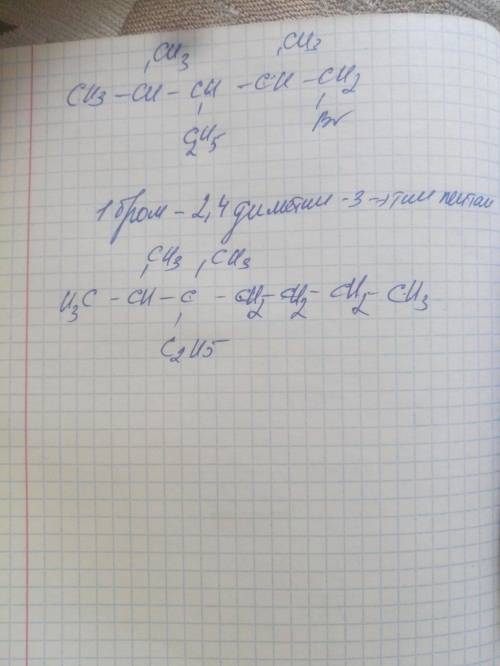 CH3 CH3
CH3 – CH – CH – CH – CH2
C2H5 Br
1 бром – 2,4 диметил -3 этил пентан
CH3 CH3
H3C – CH – C – CH2 – CH2 – CH2 – CH3
C2H5